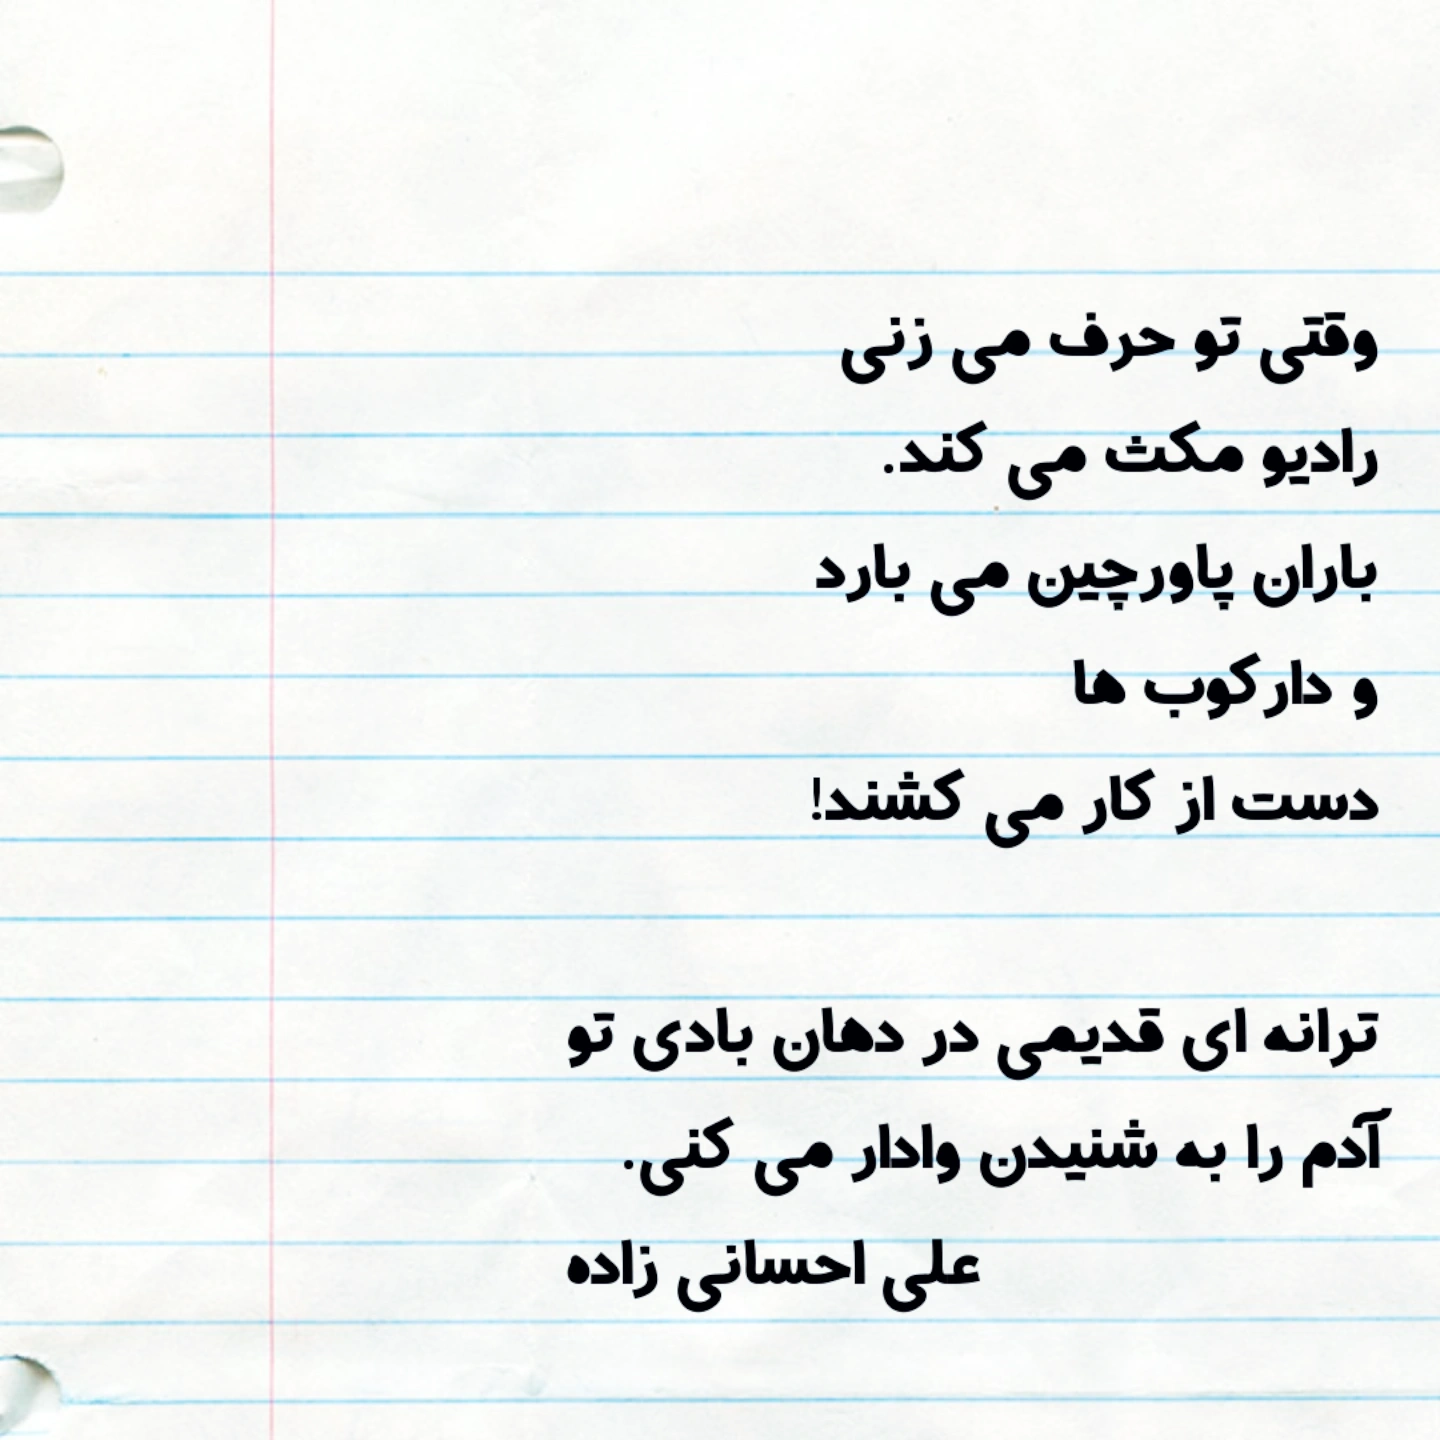 وقتی تو حرف می زنی
رادیو مکث می کند.
باران پاورچین می بارد
و دارکوب ها
دست از کار می کشند!
ترانه ای قدیمی در دهان بادی تو
آدم را به شنیدن وادار می کنی.
علی احسانی زاده